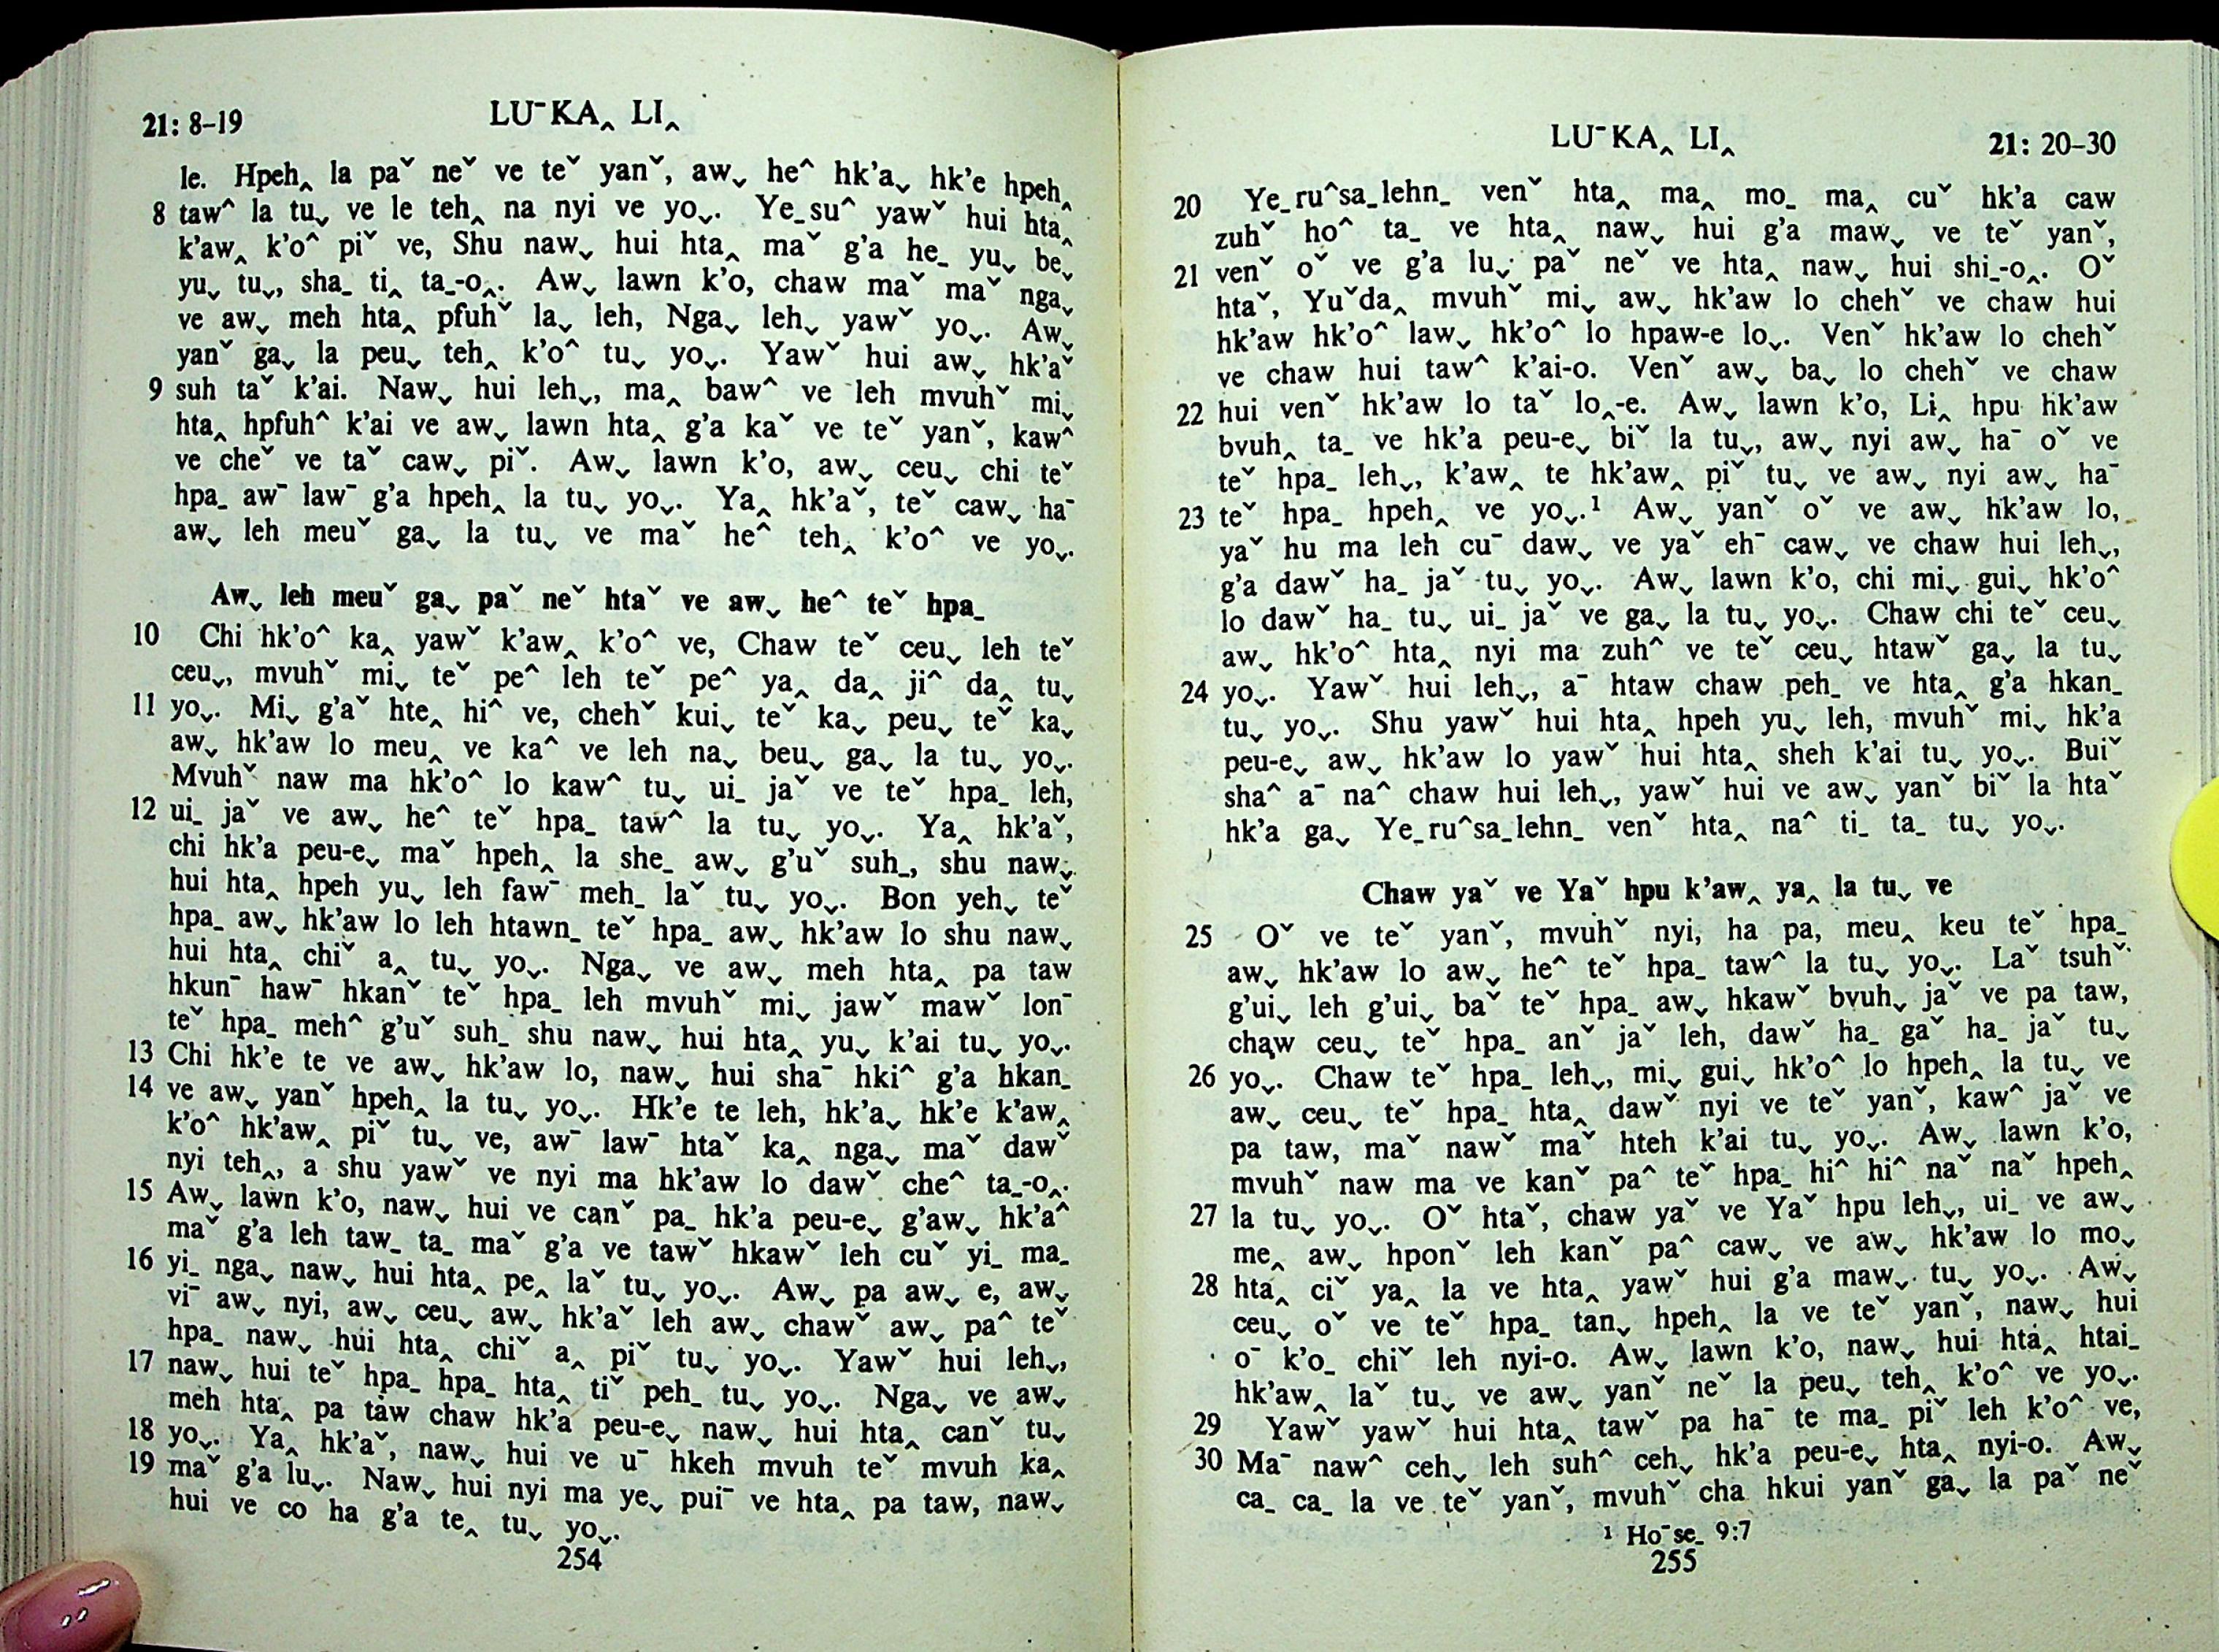 21: 8–19
LUˉKAꞈ LIꞈ
le. Hpehꞈ la paˇ neˇ ve teˇ yanˇ, awˬ heˆ hk’aˬ hk’e hpehꞈ
8 tawˆ la tuˬ ve le tehꞈ na nyi ve yoˬ. Yeˍsuˆ yawˇ hui htaꞈ
k’awꞈ k’oˆ piˇ ve, Shu nawˬ hui htaꞈ maˇ g’a heˍ yuˬ beˬ
yuˬ tuˬ, shaˍ tiꞈ taˍ-oꞈ. Awˬ lawn k’o, chaw maˇ maˇ ngaˬ
ve awˬ meh htaꞈ pfuhˇ laˬ leh, Ngaˬ lehˬ yawˇ yoˬ. Awˬ
yanˇ gaˬ la peuˬ tehꞈ k’oˆ tuˬ yoˬ. Yawˇ hui awˬ hk’aˇ
9 suh taˇ k’ai. Nawˬ hui lehˬ, maꞈ bawˆ ve leh mvuhˇ miˬ
htaꞈ hpfuhˆ k’ai ve awˬ lawn htaꞈ g’a kaˇ ve teˇ yanˇ, kawˆ
ve cheˇ ve taˇ cawˬ piˇ. Awˬ lawn k’o, awˬ ceuˬ chi teˇ
hpaˍ awˉ lawˉ g’a hpehꞈ la tuˬ yoˬ. Yaꞈ hk’aˇ, teˇ cawˬ haˉ
awˬ leh meuˇ gaˬ la tuˬ ve maˇ heˆ tehꞈ k’oˆ ve yoˬ.
Awˬ leh meuˇ gaˬ paˇ neˇ htaˇ ve awˬ heˆ teˇ hpaˍ
10 Chi hk’oˆ kaꞈ yawˇ k’awꞈ k’oˆ ve, Chaw teˇ ceuˬ leh teˇ
ceuˬ, mvuhˇ miˬ teˇ peˆ leh teˇ peˆ yaꞈ daꞈ jiˆ daꞈ tuˬ
11 yoˬ. Miˬ g’aˇ hteꞈ hiˆ ve, chehˇ kuiˬ teˇ kaˬ peuˬ teˇ kaˬ
awˬ hk’aw lo meuꞈ ve kaˆ ve leh naˬ beuˬ gaˬ la tuˬ yoˬ.
Mvuhˇ naw ma hk’oˆ lo kawˆ tuˬ uiˍ jaˇ ve teˇ hpaˍ leh,
12 uiˍ jaˇ ve awˬ heˆ teˇ hpaˍ tawˆ la tuˬ yoˬ. Yaꞈ hk’aˇ,
chi hk’a peu-eˬ maˇ hpehꞈ la sheˍ awˬ g’uˇ suhˍ, shu nawˬ
hui htaꞈ hpeh yuˬ leh fawˉ mehˍ laˇ tuˬ yoˬ. Bon yehˬ teˇ
hpaˍ awˬ hk’aw lo leh htawnˍ teˇ hpaˍ awˬ hk’aw lo shu nawˬ
hui htaꞈ chiˇ aꞈ tuˬ yoˬ. Ngaˬ ve awˬ meh htaꞈ pa taw
hkunˉ hawˉ hkanˇ teˇ hpaˍ leh mvuhˇ miˬ jawˇ mawˇ lonˉ
teˇ hpaˍ mehˆ g’uˇ suhˍ shu nawˬ hui htaꞈ yuˬ k’ai tuˬ yoˬ.
13 Chi hk’e te ve awˬ hk’aw lo, nawˬ hui shaˉ hkiˆ g’a hkanˍ
14 ve awˬ yanˇ hpehꞈ la tuˬ yoˬ. Hk’e te leh, hk’aˬ hk’e k’awꞈ
k’oˆ hk’awꞈ piˇ tuˬ ve, awˉ lawˉ htaˇ kaꞈ ngaˬ maˇ dawˇ
nyi tehꞈ, a shu yawˇ ve nyi ma hk’aw lo dawˇ cheˆ taˍ-oꞈ.
15 Awˬ lawn k’o, nawˬ hui ve canˇ paˍ hk’a peu-eˬ g’awˬ hk’aˆ
maˇ g’a leh tawˍ taˍ maˇ g’a ve tawˇ hkawˇ leh cuˇ yiˍ maˍ
16 yiˍ ngaˬ nawˬ hui htaꞈ peꞈ laˇ tuˬ yoˬ. Awˬ pa awˬ e, awˬ
viˉ awˬ nyi, awˬ ceuˬ awˬ hk’aˇ leh awˬ chawˇ awˬ paˆ teˇ
hpaˍ nawˬ hui htaꞈ chiˇ aꞈ piˇ tuˬ yoˬ. Yawˇ hui lehˬ,
17 nawˬ hui teˇ hpaˍ hpaˍ htaꞈ tiˇ pehˍ tuˬ yoˬ. Ngaˬ ve awˬ
meh htaꞈ pa taw chaw hk’a peu-eˬ nawˬ hui htaꞈ canˇ tuˬ
18 yoˬ. Yaꞈ hk’aˇ, nawˬ hui ve uˉ hkeh mvuh teˇ mvuh kaꞈ
19 maˇ g’a luˬ. Nawˬ hui nyi ma yeˬ puiˉ ve htaꞈ pa taw, nawˬ
hui ve co ha g’a teꞈ tuˬ yoˬ.
254
LUˉKAꞈ LIꞈ
21: 20–30
20 Yeˍruˆsaˍlehnˍ venˇ htaꞈ maꞈ moˍ maꞈ cuˇ hk’a caw
zuhˇ hoˆ taˍ ve htaꞈ nawˬ hui g’a mawˬ ve teˇ yanˇ,
21 venˇ oˇ ve g’a luˬ paˇ neˇ ve htaꞈ nawˬ hui shiˍ-oꞈ. Oˇ
htaˇ, Yuˇdaꞈ mvuhˇ miˬ awˬ hk’aw lo chehˇ ve chaw hui
hk’aw hk’oˆ lawˬ hk’oˆ lo hpaw-e loˬ. Venˇ hk’aw lo chehˇ
ve chaw hui tawˆ k’ai-o. Venˇ awˬ baˬ lo chehˇ ve chaw
22 hui venˇ hk’aw lo taˇ loꞈ-e. Awˬ lawn k’o, Liꞈ hpu hk’aw
bvuhꞈ taˍ ve hk’a peu-eˬ biˇ la tuˬ, awˬ nyi awˬ haˉ oˇ ve
teˇ hpaˍ lehˬ, k’awꞈ te hk’awꞈ piˇ tuˬ ve awˬ nyi awˬ haˉ
23 teˇ hpaˍ hpehꞈ ve yoˬ.¹ Awˬ yanˇ oˇ ve awˬ hk’aw lo,
yaˇ hu ma leh cuˉ dawˬ ve yaˇ ehˉ cawˬ ve chaw hui lehˬ,
g’a dawˇ haˍ jaˇ tuˬ yoˬ. Awˬ lawn k’o, chi miˬ guiˬ hk’oˆ
lo dawˇ haˍ tuˬ uiˍ jaˇ ve gaˬ la tuˬ yoˬ. Chaw chi teˇ ceuˬ
awˬ hk’oˆ htaꞈ nyi ma zuhˆ ve teˇ ceuˬ htawˇ gaˬ la tuˬ
24 yoˬ. Yawˇ hui lehˬ, aˉ htaw chaw pehˍ ve htaꞈ g’a hkanˍ
tuˬ yoˬ. Shu yawˇ hui htaꞈ hpeh yuˬ leh, mvuhˇ miˬ hk’a
peu-eˬ awˬ hk’aw lo yawˇ hui htaꞈ sheh k’ai tuˬ yoˬ. Buiˇ
shaˆ aˉ naˆ chaw hui lehˬ, yawˇ hui ve awˬ yanˇ biˇ la htaˇ
hk’a gaˬ Yeˍruˆsaˍlehnˍ venˇ htaꞈ naˆ tiˍ taˍ tuˬ yoˬ.
Chaw yaˇ ve Yaˇ hpu k’awꞈ yaꞈ la tuˬ ve
25 Oˇ ve teˇ yanˇ, mvuhˇ nyi, ha pa, meuꞈ keu teˇ hpaˍ
awˬ hk’aw lo awˬ heˆ teˇ hpaˍ tawˆ la tuˬ yoˬ. Laˇ tsuhˇ
g’uiˬ leh g’uiˬ baˇ teˇ hpaˍ awˬ hkawˇ bvuhˬ jaˇ ve pa taw,
chaw ceuˬ teˇ hpaˍ anˇ jaˇ leh, dawˇ haˍ gaˇ haˍ jaˇ tuˬ
26 yoˬ. Chaw teˇ hpaˍ lehˬ, miˬ guiˬ hk’oˆ lo hpehꞈ la tuˬ ve
awˬ ceuˬ teˇ hpaˍ htaꞈ dawˇ nyi ve teˇ yanˇ, kawˆ jaˇ ve
pa taw, maˇ nawˇ maˇ hteh k’ai tuˬ yoˬ. Awˬ lawn k’o,
mvuhˇ naw ma ve kanˇ paˆ teˇ hpaˍ hiˆ hiˆ naˇ naˇ hpehꞈ
27 la tuˬ yoˬ. Oˇ htaˇ, chaw yaˇ ve Yaˇ hpu lehˬ, uiˍ ve awˬ
meꞈ awˬ hponˇ leh kanˇ paˆ cawˬ ve awˬ hk’aw lo moˬ
28 htaꞈ ciˇ yaꞈ la ve htaꞈ yawˇ hui g’a mawˬ tuˬ yoˬ. Awˬ
ceuˬ oˇ ve teˇ hpaˍ tanˬ hpehꞈ la ve teˇ yanˇ, nawˬ hui
oˉ k’oˍ chiˇ leh nyi-o. Awˬ lawn k’o, nawˬ hui htaꞈ htaiˍ
hk’awꞈ laˇ tuˬ ve awˬ yanˇ neˇ la peuˬ tehꞈ k’oˆ ve yoˬ.
29 Yawˇ yawˇ hui htaꞈ tawˇ pa haˉ te maˍ piˇ leh k’oˆ ve,
30 Maˉ nawˆ cehˬ leh suhˆ cehˬ hk’a peu-eˬ htaꞈ nyi-o. Awˬ
caˍ caˍ la ve teˇ yanˇ, mvuhˇ cha hkui yanˇ gaˬ la paˇ neˇ
¹ Hoˉseˍ 9:7
255